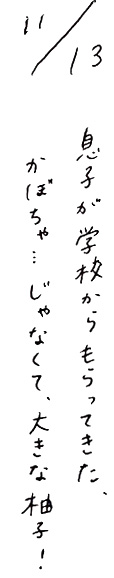 11/13
息子が学校からもらってきた、
かぼちゃ…じゃなくて、大きな柚子!